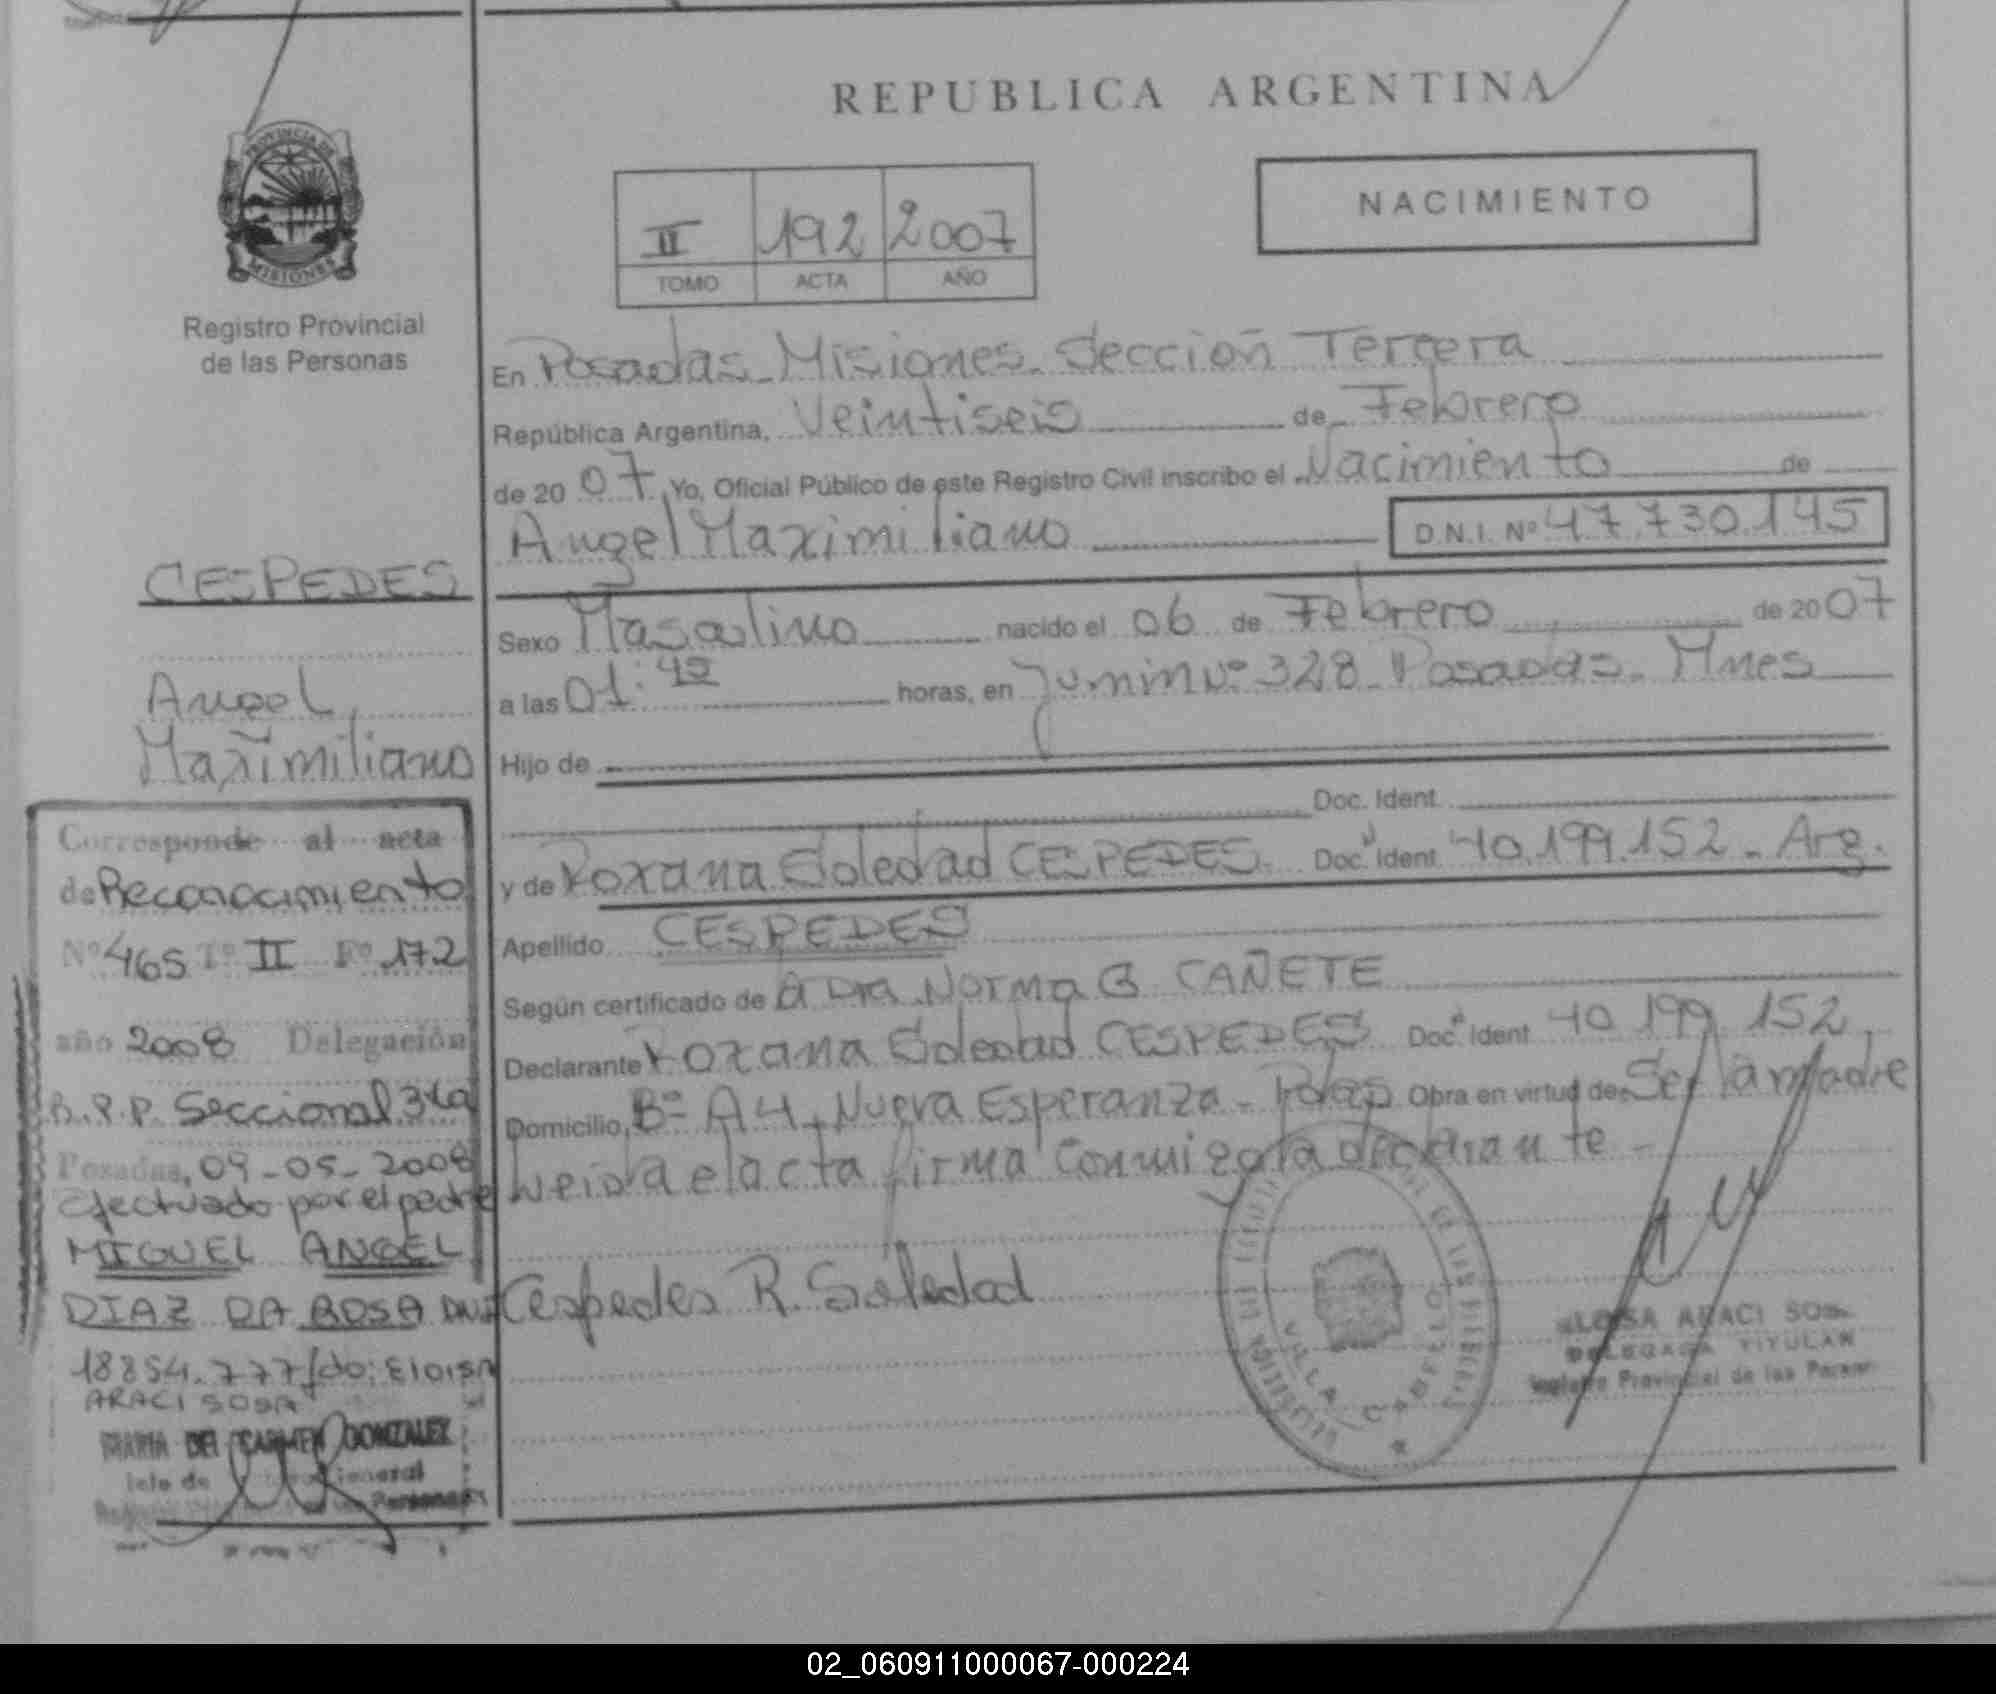 REPUBLICA ARGENTINA
NACIMIENTO
II 192 2007
TOMO ACTA AÑO
PROVINCIA DE
MISIONES
Registro Provincial
de las Personas
CESPEDES
Angel
Maximiliano
En Posadas - Misiones. Sección Tercera
República Argentina, Veintiseis de Febrero
de 20 07, Yo, Oficial Público de este Registro Civil inscribo el Nacimiento de
Angel Maximiliano D.N.I. Nº 47.730.145
Sexo Masculino nacido el 06 de Febrero de 20 07
a las 01: horas, en Junin Nº 328 Posadas. Mnes
Hijo de
Doc. Ident.
y de Roxana Soledad CESPEDES. Doc. Ident. 40.199.152 - Arg.
Apellido CESPEDES
Según certificado de Dra. Norma G CAÑETE
Declarante Roxana Soledad CESPEDES Doc. Ident. 40 199 152
Domicilio Bº A4. Nueva Esperanza - Pdas Obra en virtud de Ser la Madre
Leida el acta firma conmigo la declarante -
Cespedes R. Soledad
VILLA CABELLO
ARACI
DELEGADA TITULAR
Registro Provincial de las Person
Corresponde al acta
de Reconocimiento
Nº 465 Tº II Fº 172
año 2008 Delegación
R.P.P. Seccional 3ra
Posadas, 09-05-2008
Efectuado por el padre
MIGUEL ANGEL
DIAZ DA ROSA DNI
18854.777/do: Eloisa
ARACI SOSA
MARIA DEL CARMEN GONZALEZ
Jefe de General
Personas
02_060911000067-000224